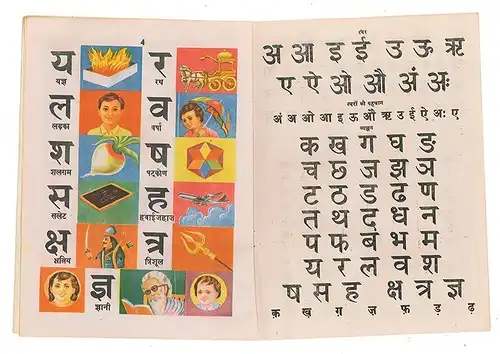 4
य र
यज्ञ रथ
ल व
लड़का वर्षा
श ष
शलगम षटकोण
स ह
सलेट हवाईजहाज
क्ष त्र
क्षत्रिय त्रिशूल
ज्ञ
ज्ञानी
स्वर
अ आ इ ई उ ऊ ऋ
ए ऐ ओ औ अं अः
स्वरों की पहचान
अं अ ओ आ इ ऊ औ ऋ उ ई ऐ अः ए
व्यञ्जन
क ख ग घ ङ
च छ ज झ ञ
ट ठ ड ढ ण
त थ द ध न
प फ ब भ म
य र ल व श
ष स ह क्ष त्र ज्ञ
क़ ख़ ग़ ज़ फ़ ड़ ढ़